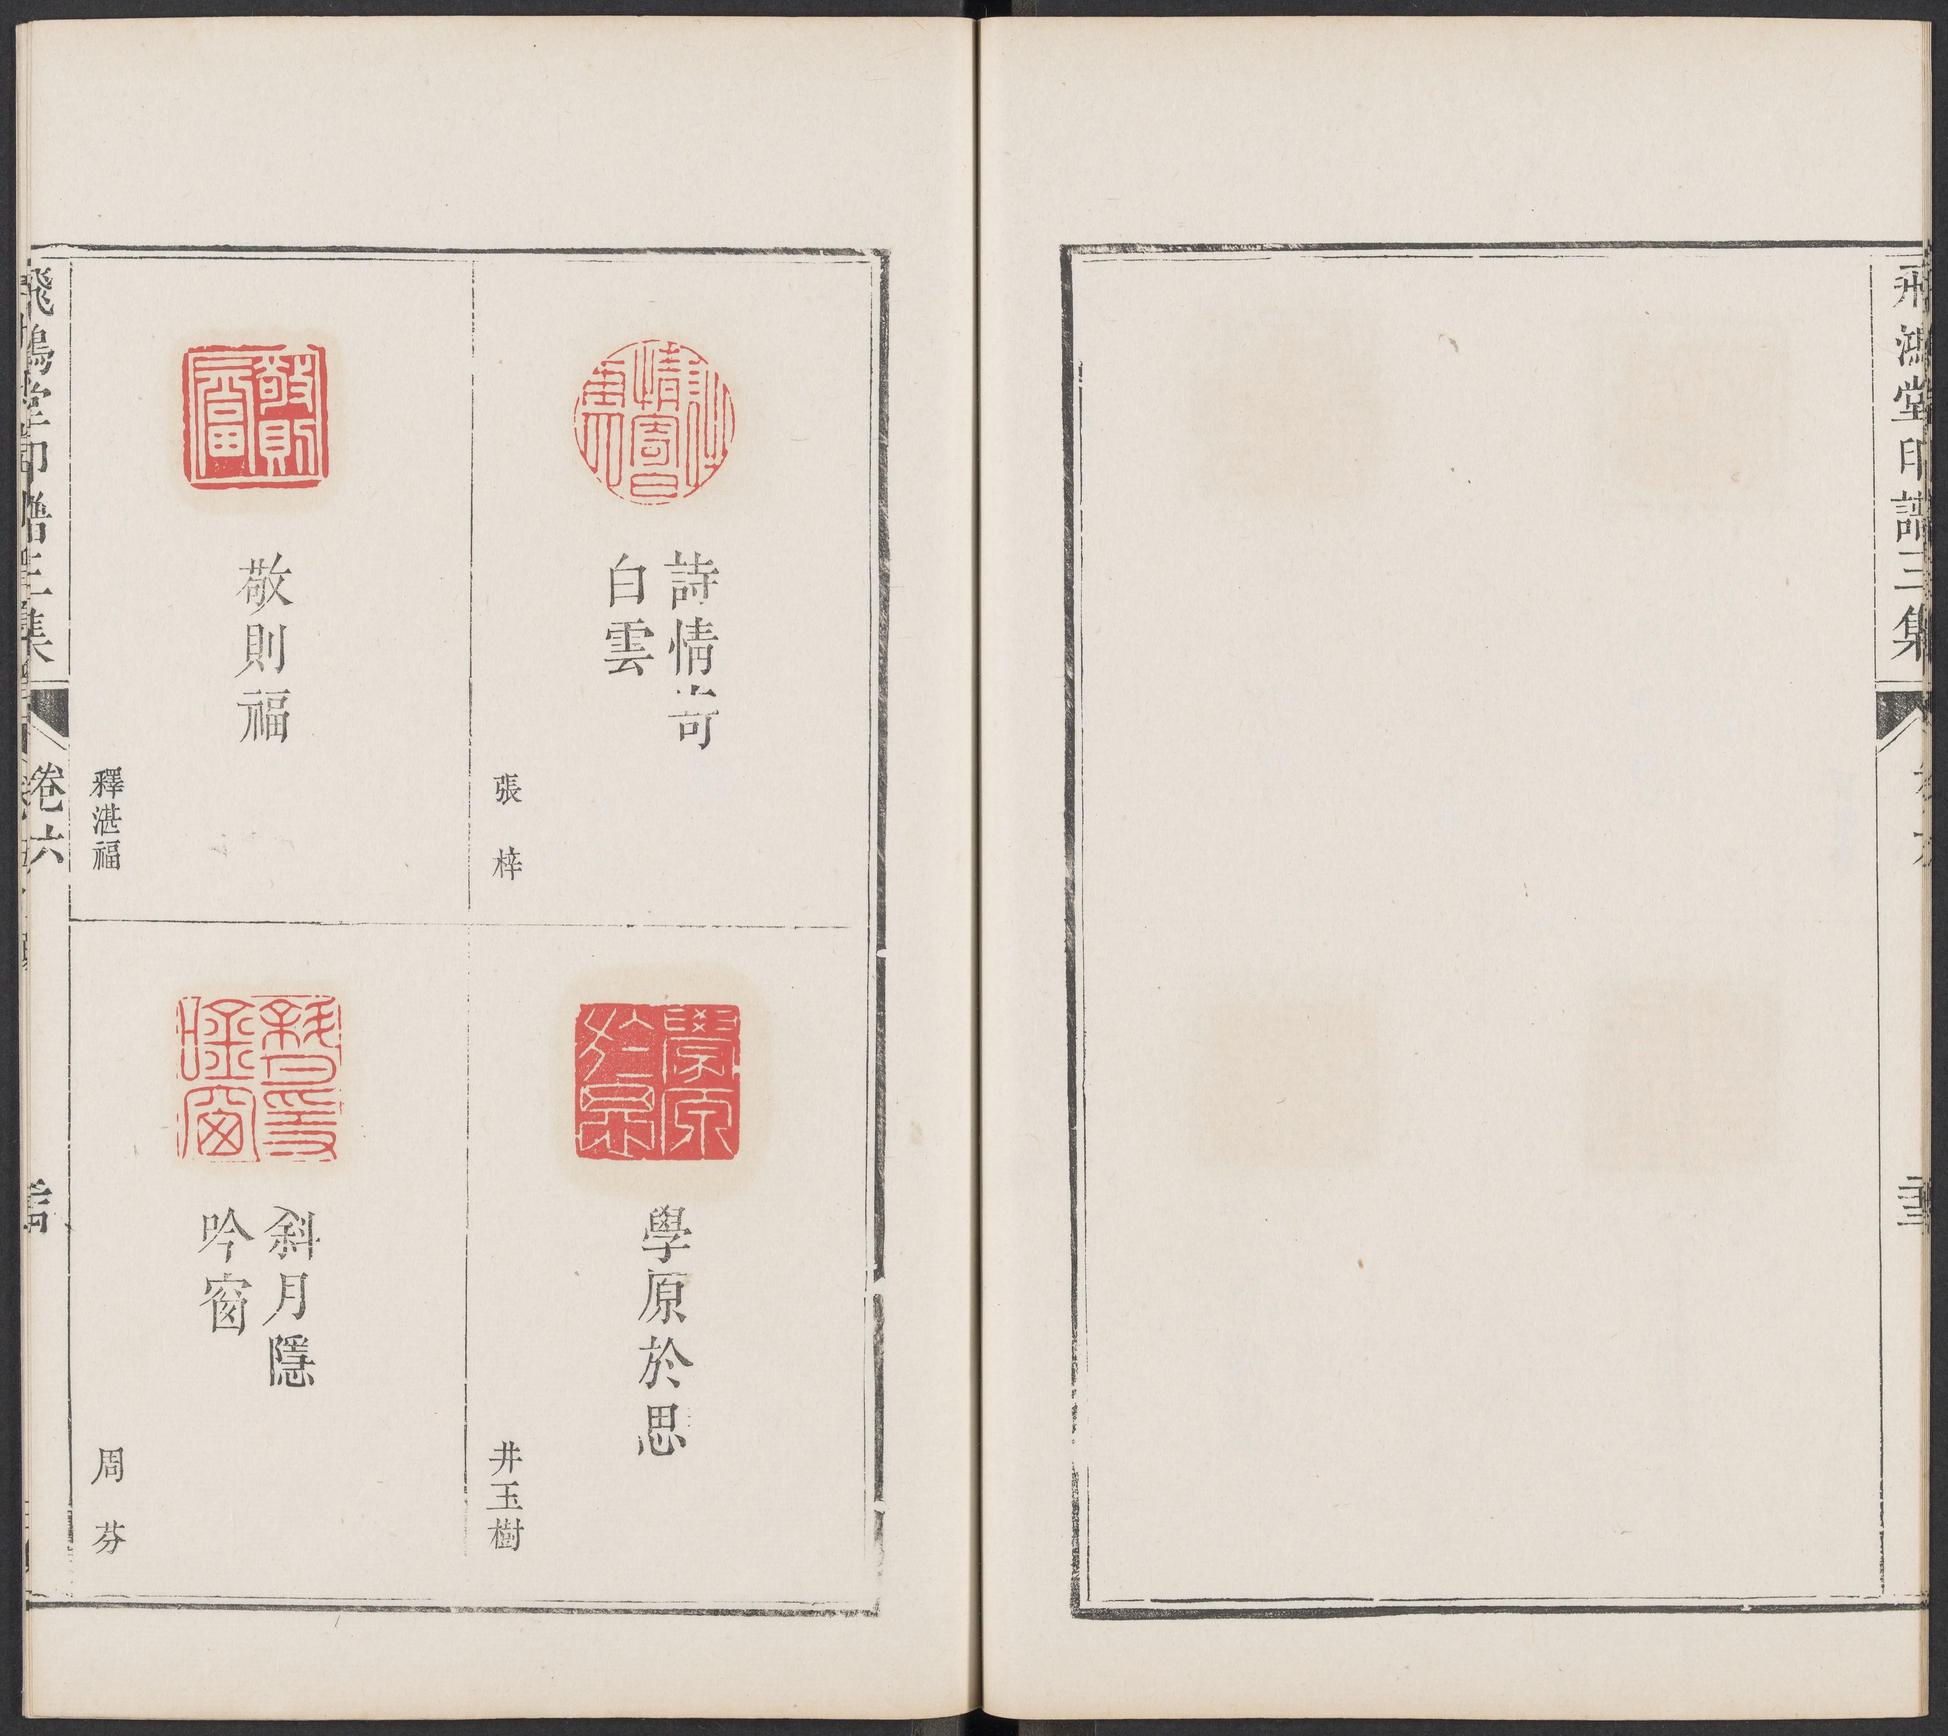 飛鴻堂印譜三集
詩情寄
白雲
張梓
學原於思
井玉樹
敬則福
釋湛福
斜月隱
吟窗
周芬
飛鴻堂印譜三集
卷六